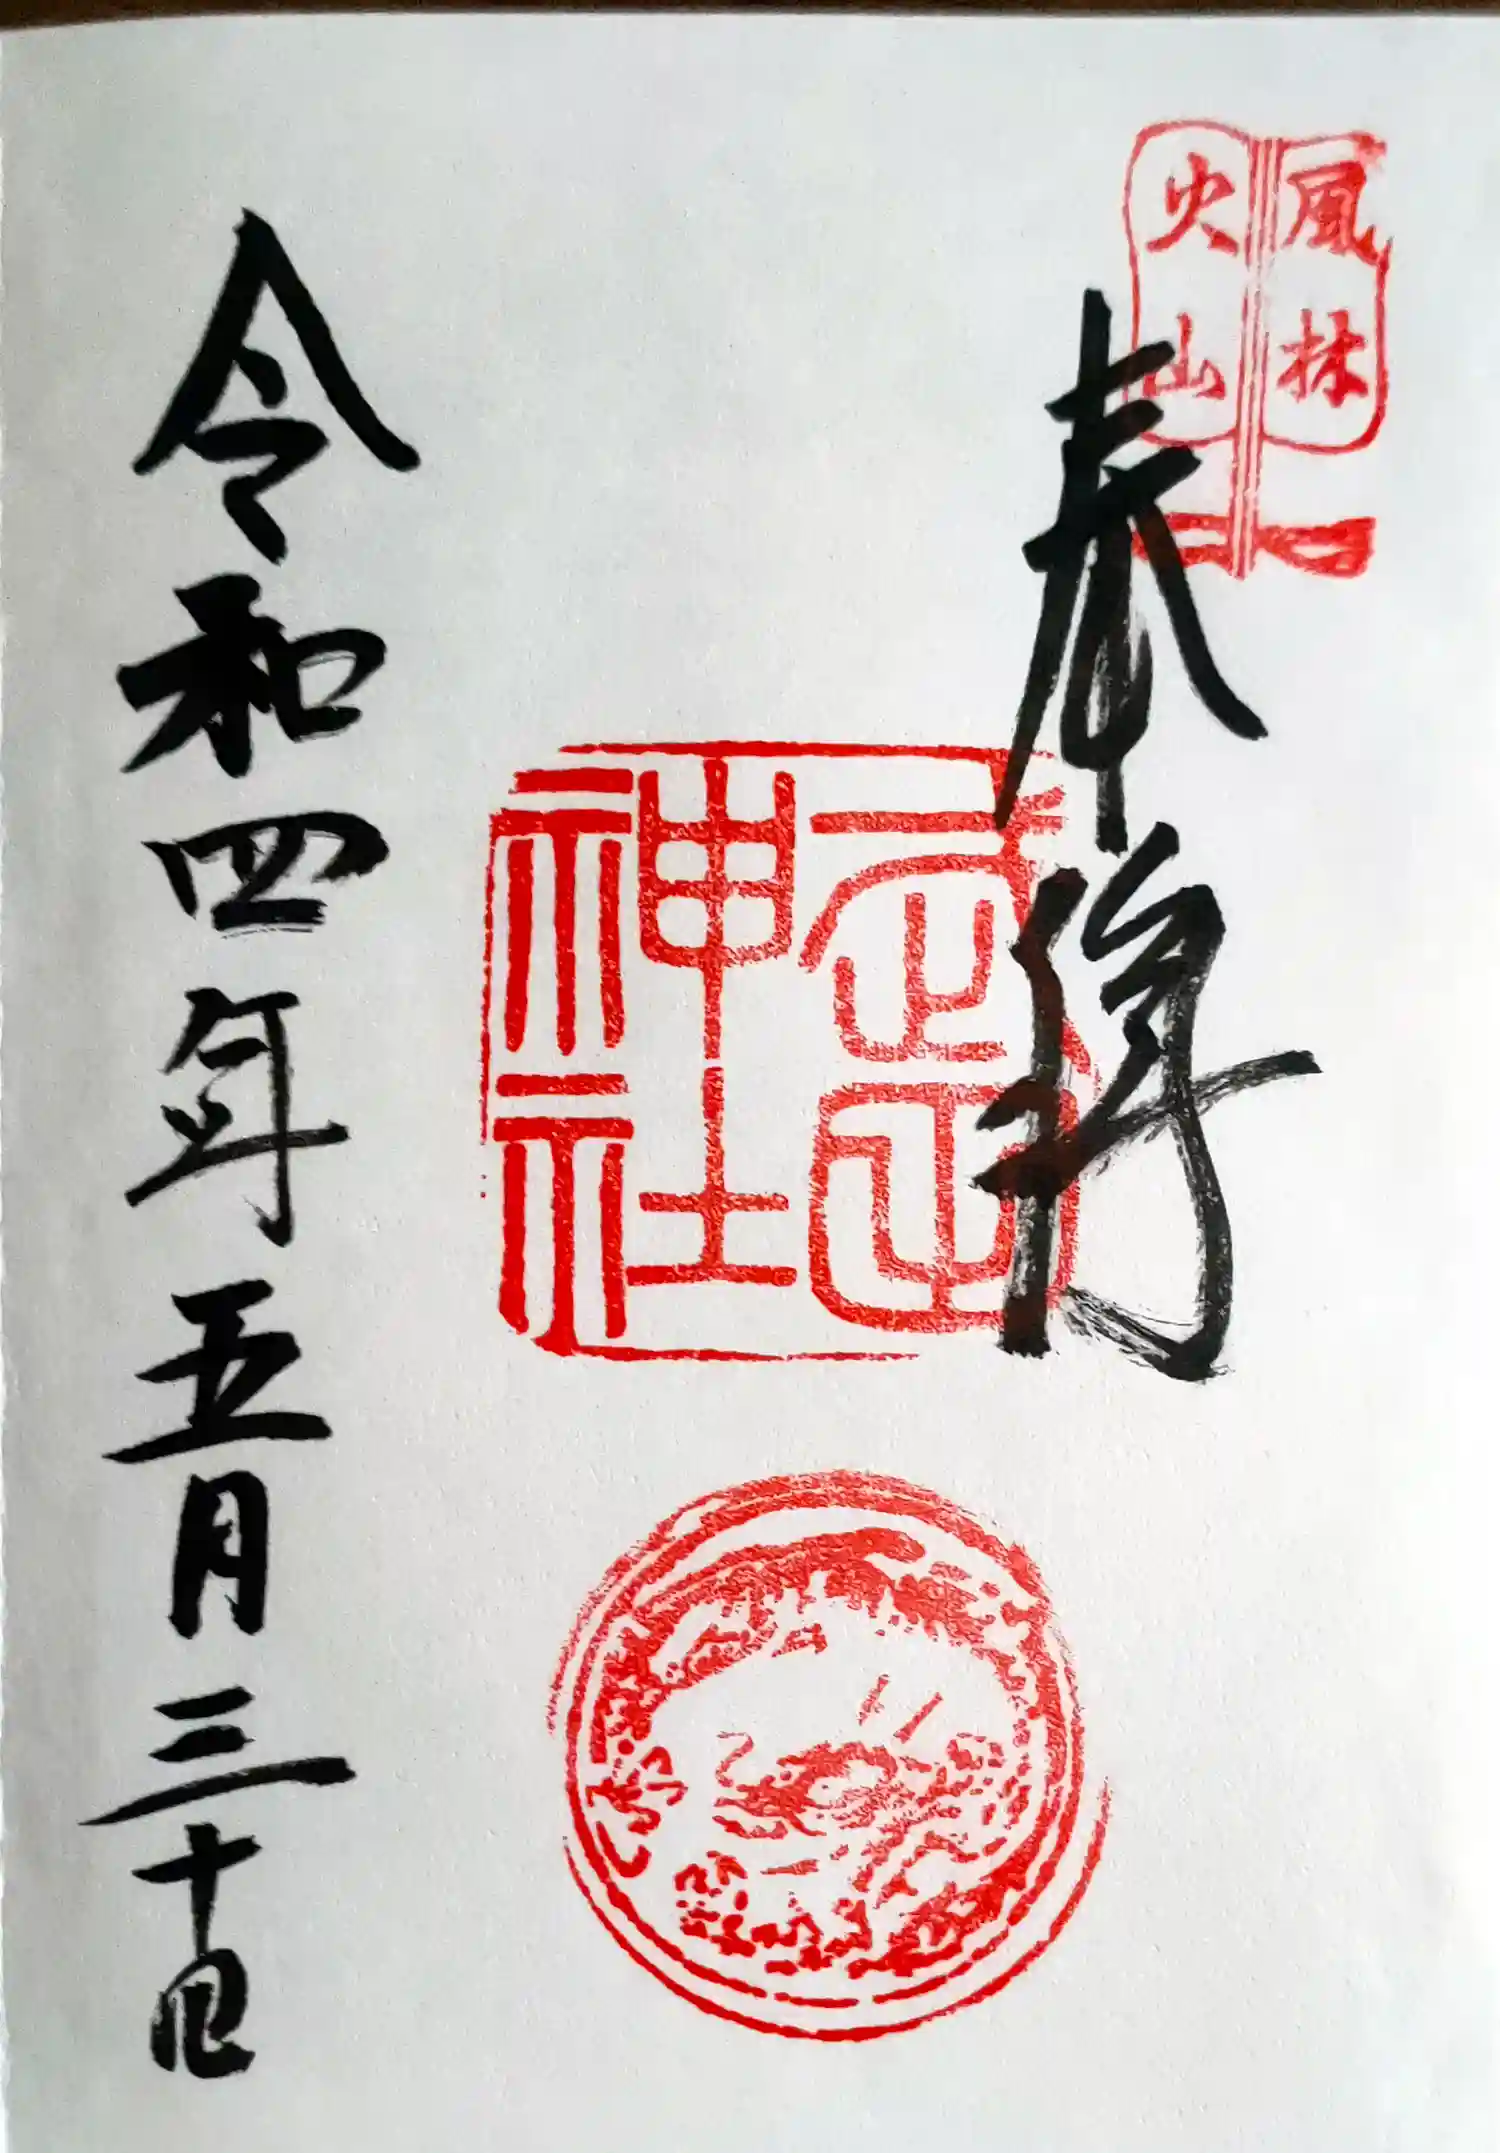 風林
火山
奉拝
武田
神社
令和四年五月三十日